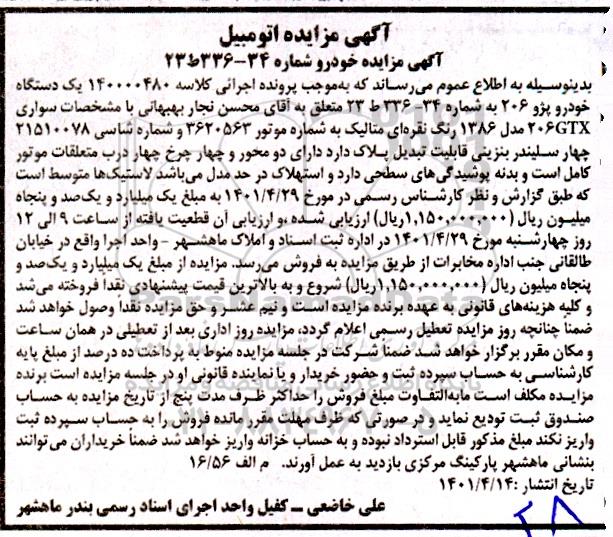 آگهی مزایده اتومبیل
آگهی مزایده خودرو شماره ۳۴-۳۳۶ط۲۳
بدینوسیله به اطلاع عموم می‌رساند که به‌موجب پرونده اجرائی کلاسه ۱۴۰۰۰۰۴۸۰ یک دستگاه
خودرو پژو ۲۰۶ به شماره ۳۴- ۳۳۶ ط ۲۳ متعلق به آقای محسن نجار بهبهانی با مشخصات سواری
۲۰۶GTX مدل ۱۳۸۶ رنگ نقره‌ای متالیک به شماره موتور ۳۶۲۰۵۶۳ و شماره شاسی ۲۱۵۱۰۰۷۸
چهار سلیندر بنزینی قابلیت تبدیل پلاک دارد دارای دو محور و چهار چرخ چهار درب متعلقات موتور
کامل است و بدنه پوشیدگی‌های سطحی دارد و استهلاک در حد مدل می‌باشد لاستیک‌ها متوسط است
که طبق گزارش و نظر کارشناس رسمی در مورخ ۱۴۰۱/۴/۲۹ به مبلغ یک میلیارد و یک‌صد و پنجاه
میلیون ریال (۱,۱۵۰,۰۰۰,۰۰۰ریال) ارزیابی شده و ارزیابی آن قطعیت یافته از ساعت ۹ الی ۱۲
روز چهارشنبه مورخ ۱۴۰۱/۴/۲۹ در اداره ثبت اسناد و املاک ماهشهر - واحد اجرا واقع در خیابان
طالقانی جنب اداره مخابرات از طریق مزایده به فروش می‌رسد. مزایده از مبلغ یک میلیارد و یک‌صد و
پنجاه میلیون ریال (۱,۱۵۰,۰۰۰,۰۰۰ریال) شروع و به بالاترین قیمت پیشنهادی نقدا فروخته می‌شد
و کلیه هزینه‌های قانونی به عهده برنده مزایده است و نیم عشر و حق مزایده نقدا وصول خواهد شد
ضمنا چنانچه روز مزایده تعطیل رسمی اعلام گردد، مزایده روز اداری بعد از تعطیلی در همان ساعت
و مکان مقرر برگزار خواهد شد ضمنا شرکت در جلسه مزایده منوط به پرداخت ده درصد از مبلغ پایه
کارشناسی به حساب سپرده ثبت و حضور خریدار و یا نماینده قانونی او در جلسه مزایده است برنده
مزایده مکلف است مابه‌التفاوت مبلغ فروش را حداکثر ظرف مدت پنج از تاریخ مزایده به حساب
صندوق ثبت تودیع نماید و در صورتی که ظرف مهلت مقرر مانده فروش را به حساب سپرده ثبت
واریز نکند مبلغ مذکور قابل استرداد نبوده و به حساب خزانه واریز خواهد شد ضمنا خریداران می‌توانند
بنشانی ماهشهر پارکینگ مرکزی بازدید به عمل آورند. م الف ۱۶/۵۶
تاریخ انتشار :۱۴۰۱/۴/۱۴
علی خاضعی ــ کفیل واحد اجرای اسناد رسمی بندر ماهشهر
۲۸